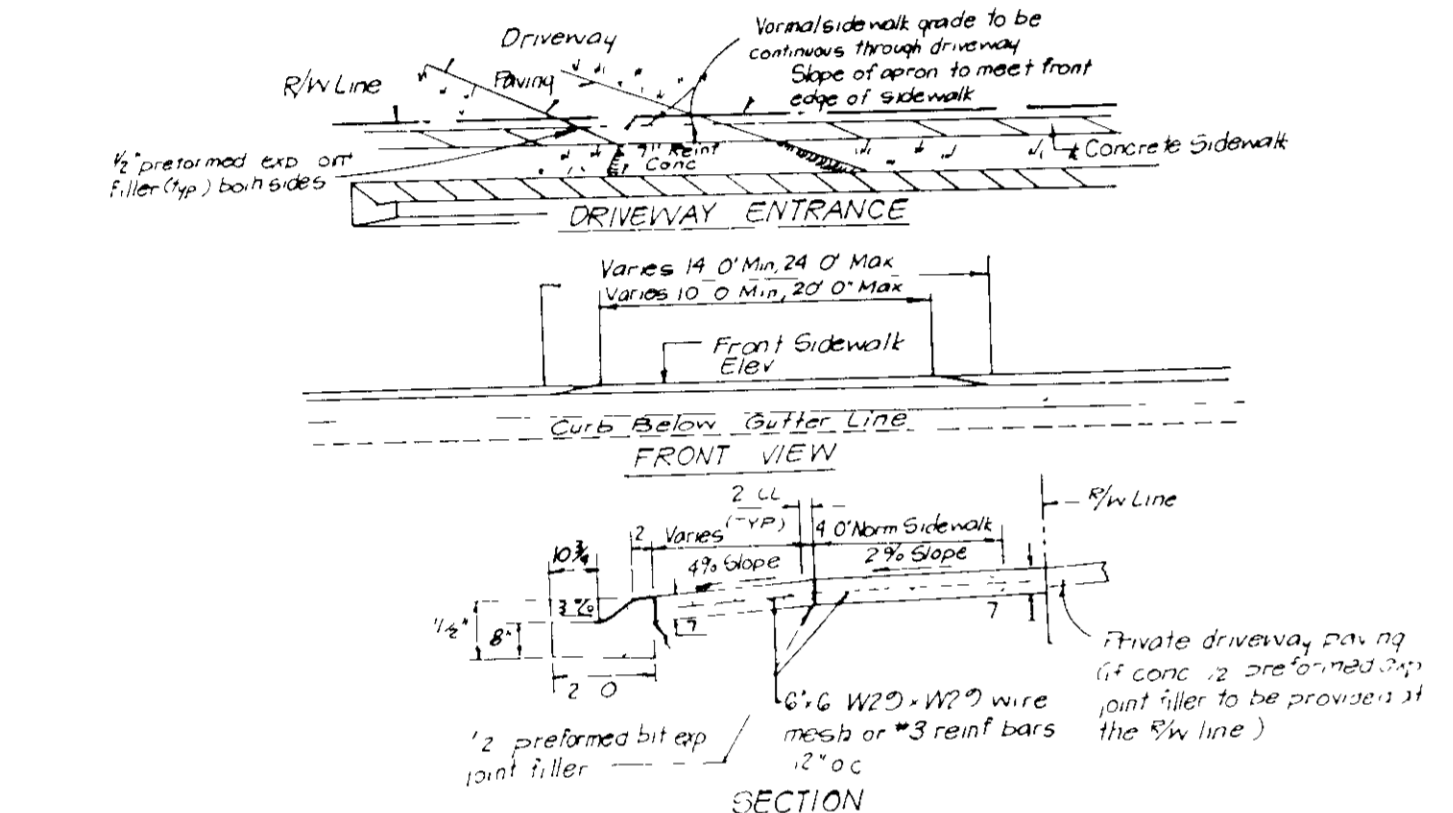 Driveway
Vormal sidewalk grade to be
continuous through driveway
Slope of apron to meet front
edge of sidewalk
R/W Line
Paving
7" Reinf
Conc
Concrete Sidewalk
1/2" preformed exp
filler (typ) both sides
DRIVEWAY ENTRANCE
Varies 14 0' Min, 24 0' Max
Varies 10 0 Min, 20' 0" Max
Front Sidewalk
Elev
Curb Below Gutter Line
FRONT VIEW
2 CL
(TYP)
R/W Line
2
Varies
4 0' Norm Sidewalk
10 3/4
4% Slope
2% Slope
8"
7
7
2 0
Private driveway paving
(if conc preformed exp
joint filler to be provided at
the R/W line)
6"x6 W29 x W29 wire
mesh or #3 reinf bars
12" o c
1/2 preformed bit exp
joint filler
SECTION